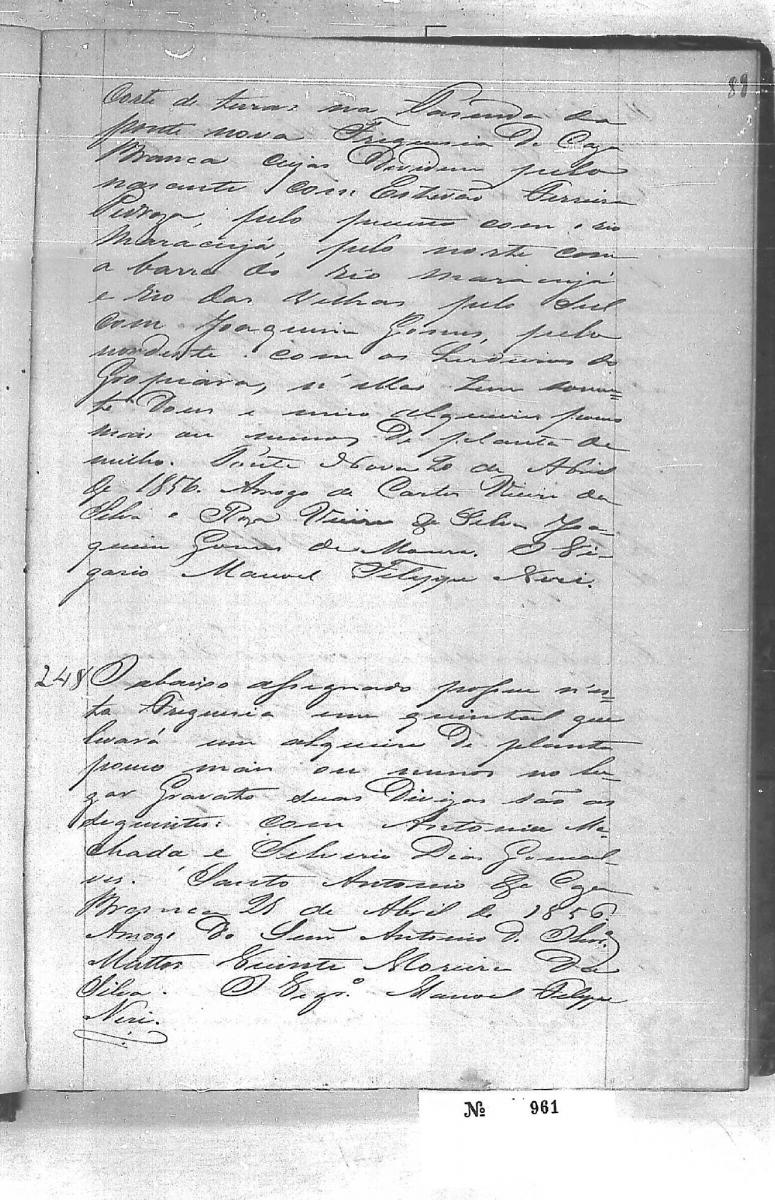 88
Corte de terras na Fazenda da
ponte nova Freguesia de Caza
Branca cujas Dividem pelo
nascente com Estevão Ferreira
pelo poente com o rio
Maracujá, pelo norte com
a barra do rio maracujá
e rio das Velhas pelo Sul
com Joaquim Gomes, pelo
com os herdeiros do
n'ellas tem somen=
te Dous e meio alqueires pouco
mais ou menos de planta de
milho. Ponte Nova 20 de Abril
de 1856. Arrogo de Carlos Vieira da
Silva e Roza Vieira da Silva Joa-
quim Gomes de Moura. O Vi-
gario Manoel Filippe Neri.
248 O abaixo assignado possue n'es-
ta Freguesia um quintal que
levará um alqueire de planta
pouco mais ou menos no lu-
gar Gravato suas Divizas são as
seguintes: com Antonio Ma-
chado e Silverio Dias Gonsal
ves. Santo Antonio de Caza
Branca 28 de Abril de 1856
Arrogo do Senr. Antonio
Mattos Vicente Moreira da
Silva. O Vigr.º Manoel Felippe
Neri.
Nº 961